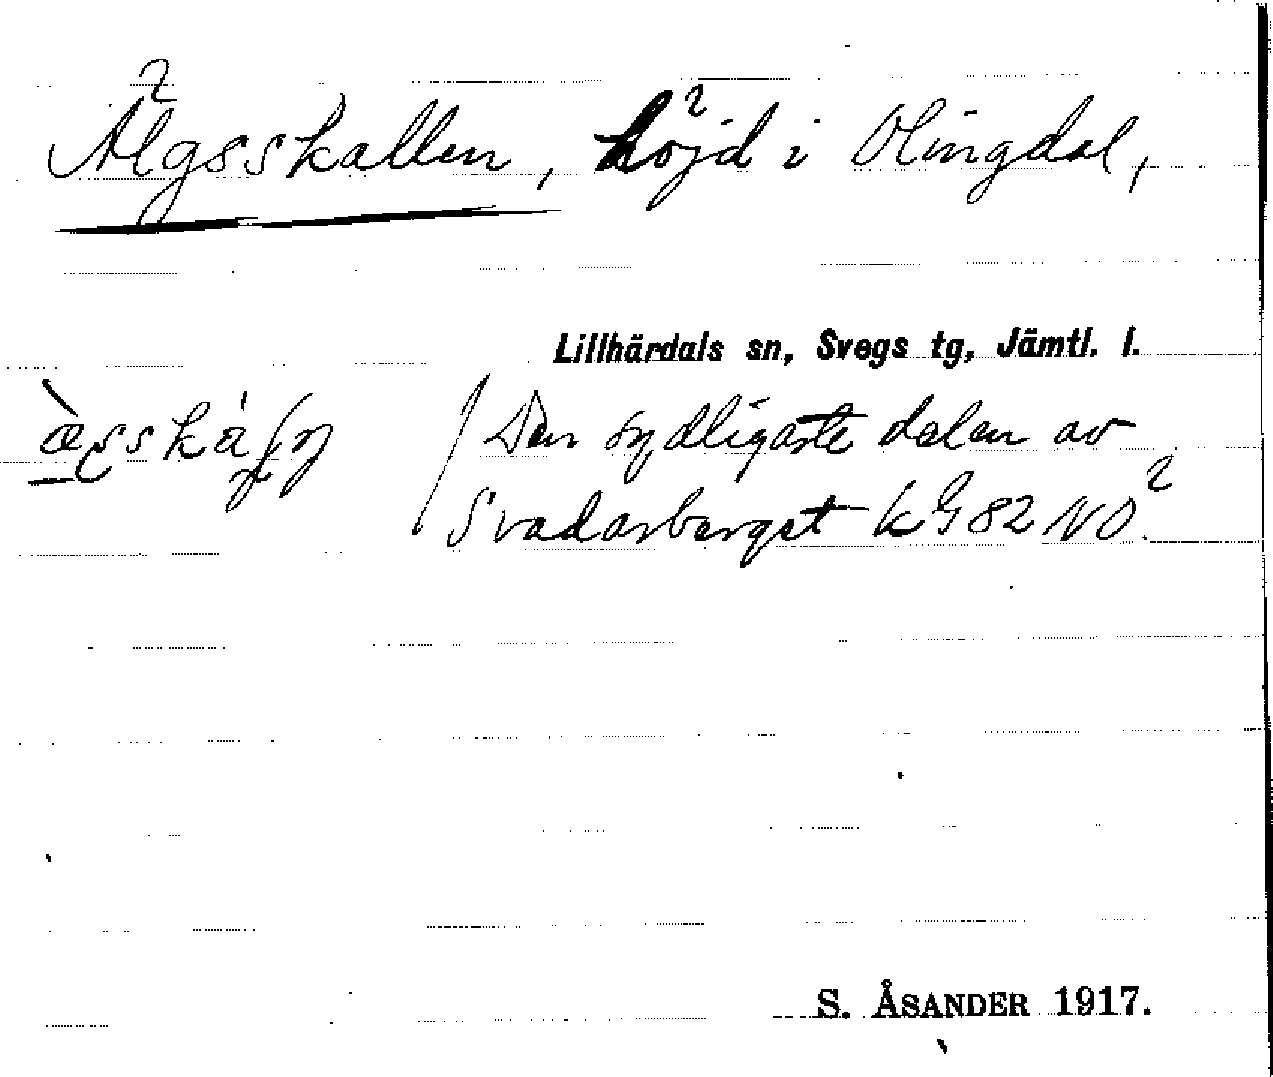 Älgsskallen, höjd i Olingdal,
Lillhärdals sn, Svegs tg, Jämtl. l.
Den sydligaste delen av
Svadarberget kG 82 NO
S. ÅSANDER 1917.